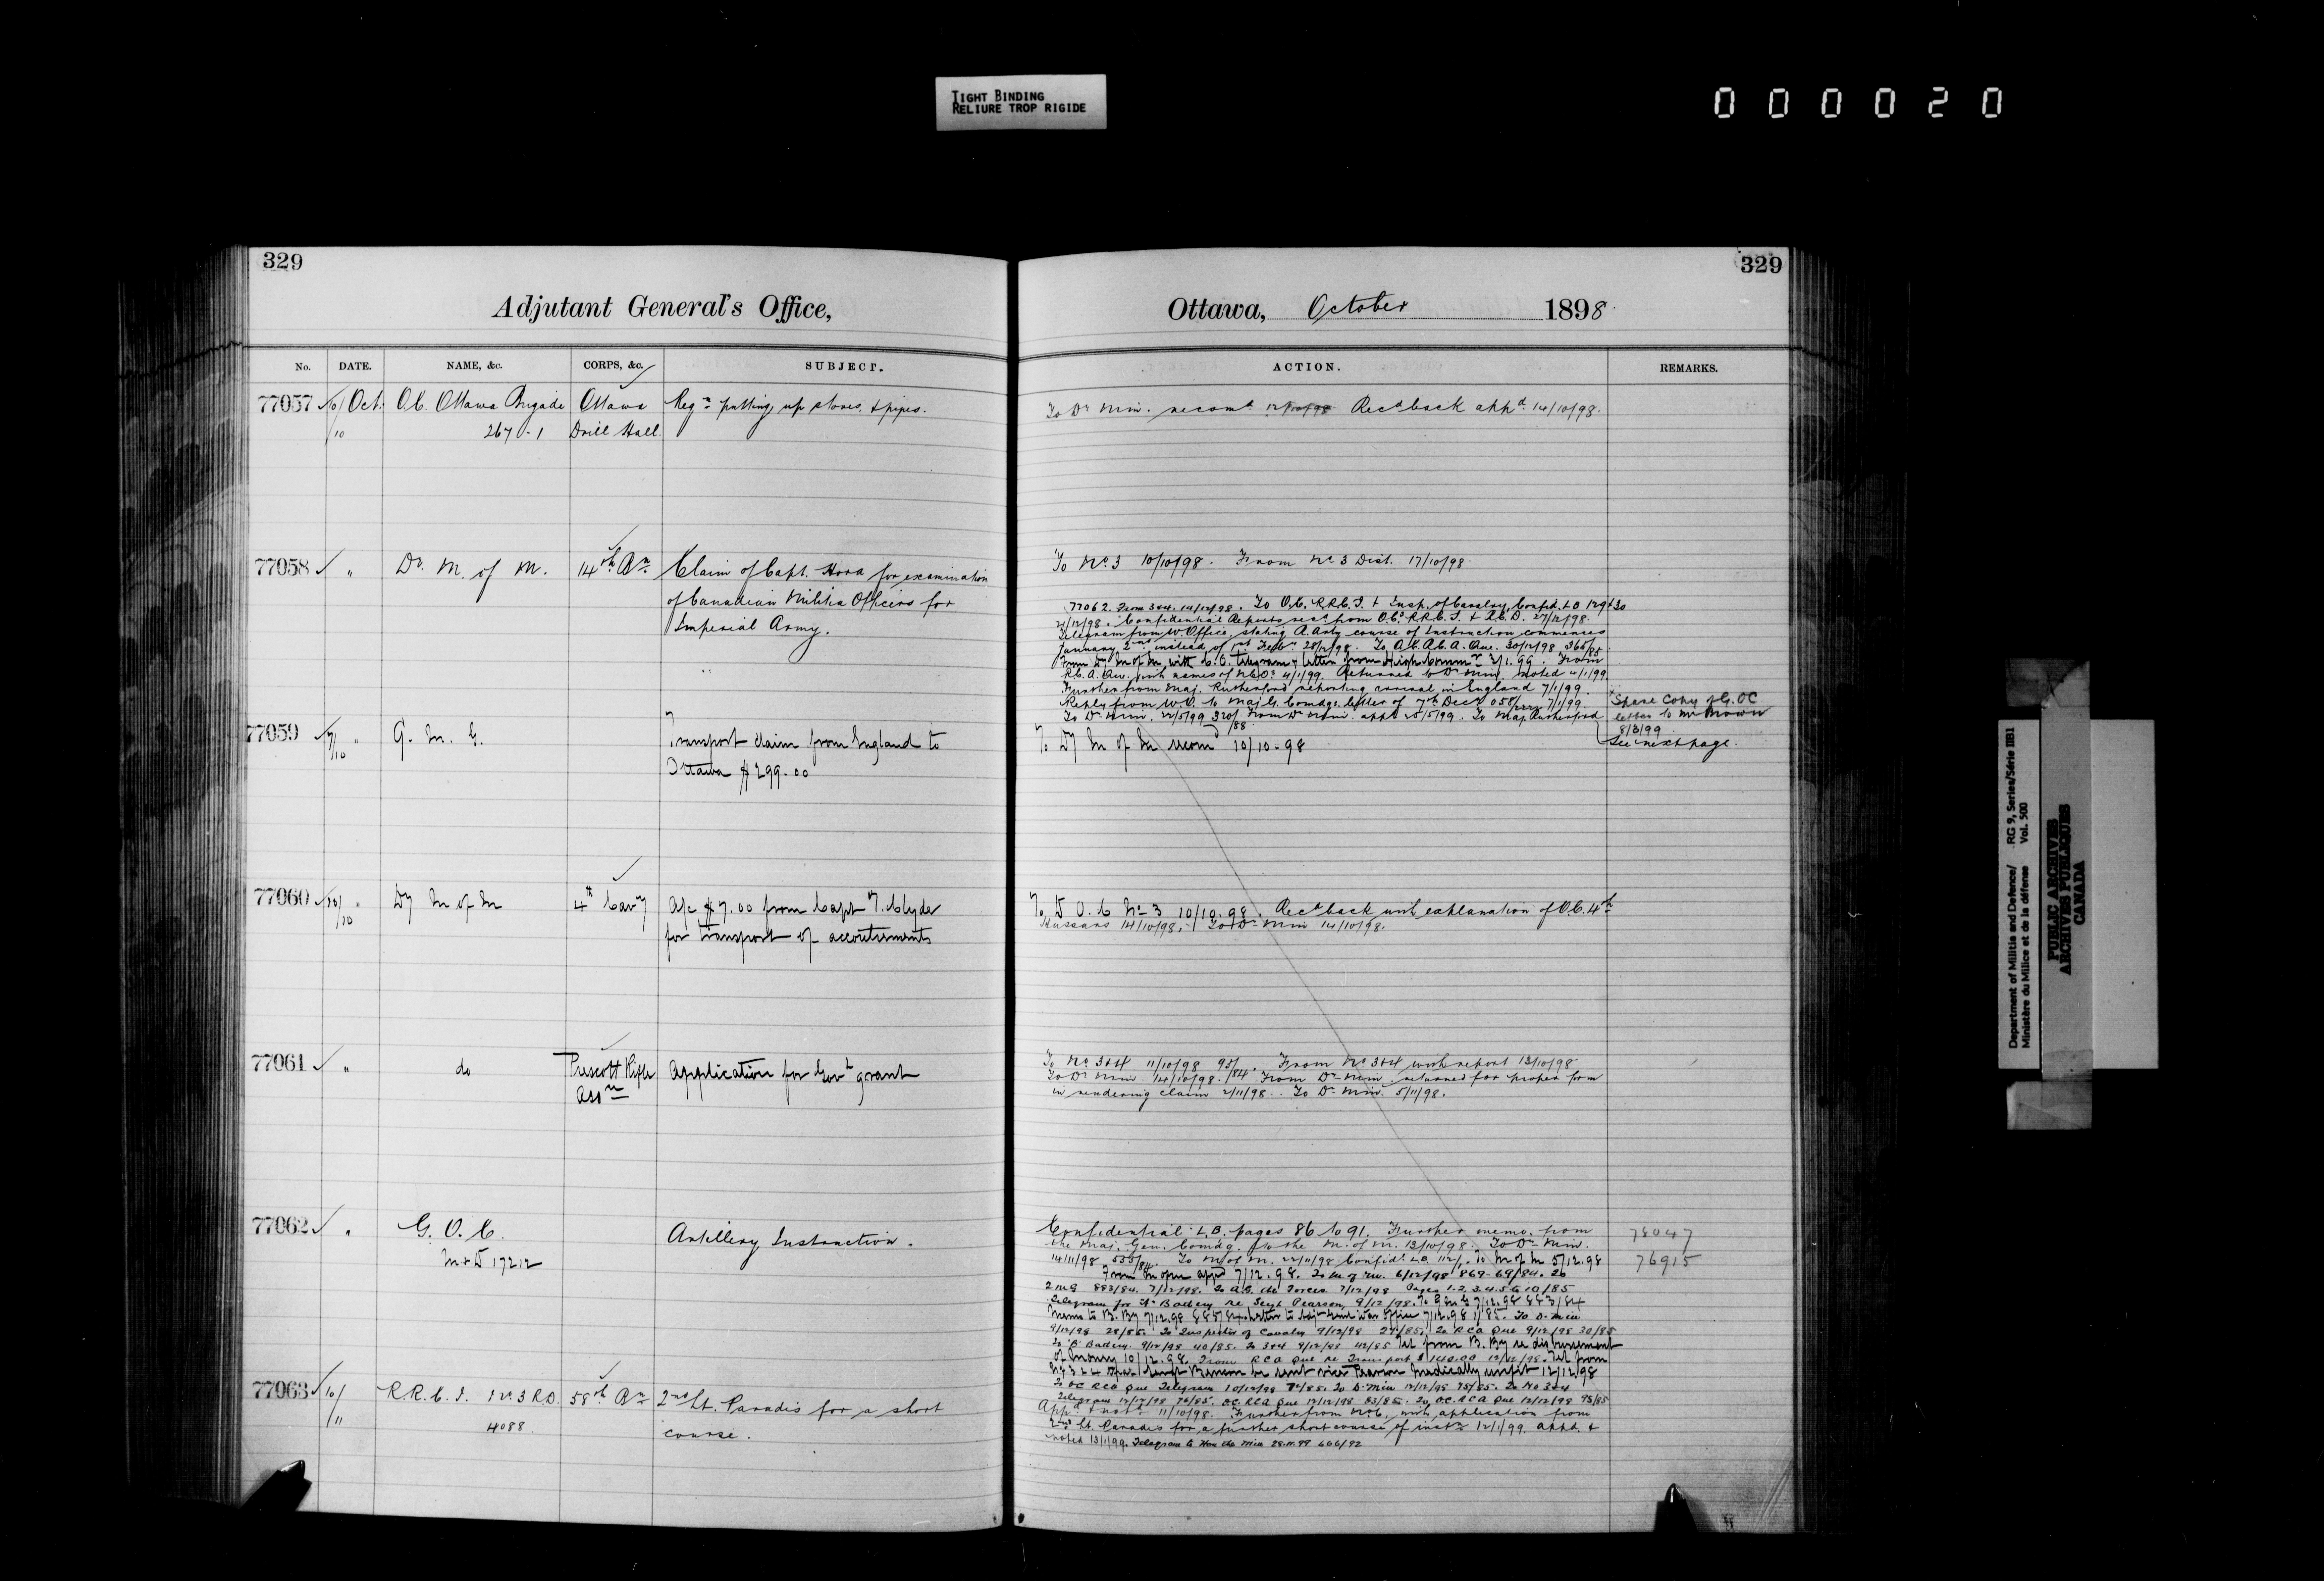 TIGHT BINDING
RELIURE TROP RIGIDE
000020
329
Adjutant General's Office,
No. DATE. NAME, &c. CORPS, &c. SUBJECT.
77057 10/10 Oct. O.C. Ottawa Brigade Ottawa Reqn putting up stoves, & pipes.
267-1 Drill Hall
77058 " Dy. M. of M. 14th Bn Claim of Capt. Hora for examination
of Canadian Militia Officers for
Imperial Army.
77059 " Q. M. G. Transport claim from England to
Ottawa $299.00
77060 10/10 " Dy M of M 4th Cavy A/c $7.00 from Capt T. Clyde
for transport of accoutrements
77061 " do Prescott Rifle Application for Govt grant
Assn
77062 " G. O. C. Artillery Instruction.
M & D 17212
77063 10/11 R.R.C.I. No 3 R.D. 58th Bn 2nd Lt. Paradis for a short
4088 course.
329
Ottawa, October 1898
ACTION. REMARKS.
To Dy Min. recomd 12/10/98 Recd back appd 14/10/98.
To No 3 10/10/98. From No 3 Dist. 17/10/98.
77062. From 3&4. 14/12/98. To O.C. R.R.C.I. & Insp. of Cavalry, Confid. L B 129 &
/12/98. Confidential Reports recd from O.C. R.R.C.I. & R.C.D. 27/12/98.
Telegram from W. Office stating A. Arty course of Instruction commences
January 2nd instead of 1st Feby 28/12/98. To O.C. R.C.A. Que. 30/12/98 365/85
From Dy M of M with telegram & letter from High Commr 3/1.99. From
R.C.A. Que. with names of N.C.Os 4/1/99. Returned to Dy Min. Noted 4/1/99
Further from Maj. Rutherford reporting arrival in England 7/1/99.
Reply from W.O. to Maj G. Comdgs. letter of 7th Decr 7/1/99.
To Dy Min. 22/5/99 From Dy Min. appd 25/5/99. To Maj Rutherford
Spare Copy of G.OC
letter to Mr Brown
8/3/99
See next page.
To Dy M of M recomd 10/10-98
To D O C No 3 10/10.98. Recd back with explanation of O.C. 4th
Hussars 14/10/98. To Dy Min 14/10/98.
To No 3&4 11/10/98 95/84. From No 3&4 with report 13/10/98
To Dy Min. 14/10/98. From Dy Min. returned for proper form
in rendering claim 2/11/98. To Dy Min. 5/11/98.
Confidential L.B. pages 86 to 91. Further memo. from
the Maj. Gen. Comdg. to the M. of M. 13/10/98. To Dy Min.
14/11/98 To M of M. 22/11/98 Confidl L.B. 112/1. To M of M 5/12.98
From M of M appd 7/12.98. To M of M. 6/12/98 869-69/84. To
Q M G 883/84. 7/12/98. To A.G. the Forces. 7/12/98 Pages 1.2.3.4.5.6.10/85
Telegram for "A" Battery re Sergt Pearson, 9/12/98.
9/12/98 28/85. To Inspector of Cavalry 9/12/98 29/85. To RCA Que 9/12/98 30/85
To B Battery. 9/12/98 40/85. To 3&4 9/12/98 42/85 Tel from B. By re disbursement
of money 10/12.98. From RCA Que re Transport $140.00 12/12/98. Tel from
be sent vice Pearson medically unfit 12/12/98
To OC RCA Que Telegram 10/12/98 To D. Min 12/12/98 75/85. To No 3&4
Telegram 12/12/98 76/85. O.C. RCA Que 12/12/98 83/85. To O.C. RCA Que 12/12/98 93/85
78047
76915
Appd & notd 11/10/98. Further from No 6, with application from
2nd Lt. Paradis for a further short course of instn 12/1/99. appd. &
noted 13/1/99. Telegram to Hon the Min 28.11.99 606/92
Department of Militia and Defence/ RG 9, Series/Série IIB1
Ministère du Milice et de la défense Vol. 500
PUBLIC ARCHIVES
ARCHIVES PUBLIQUES
CANADA